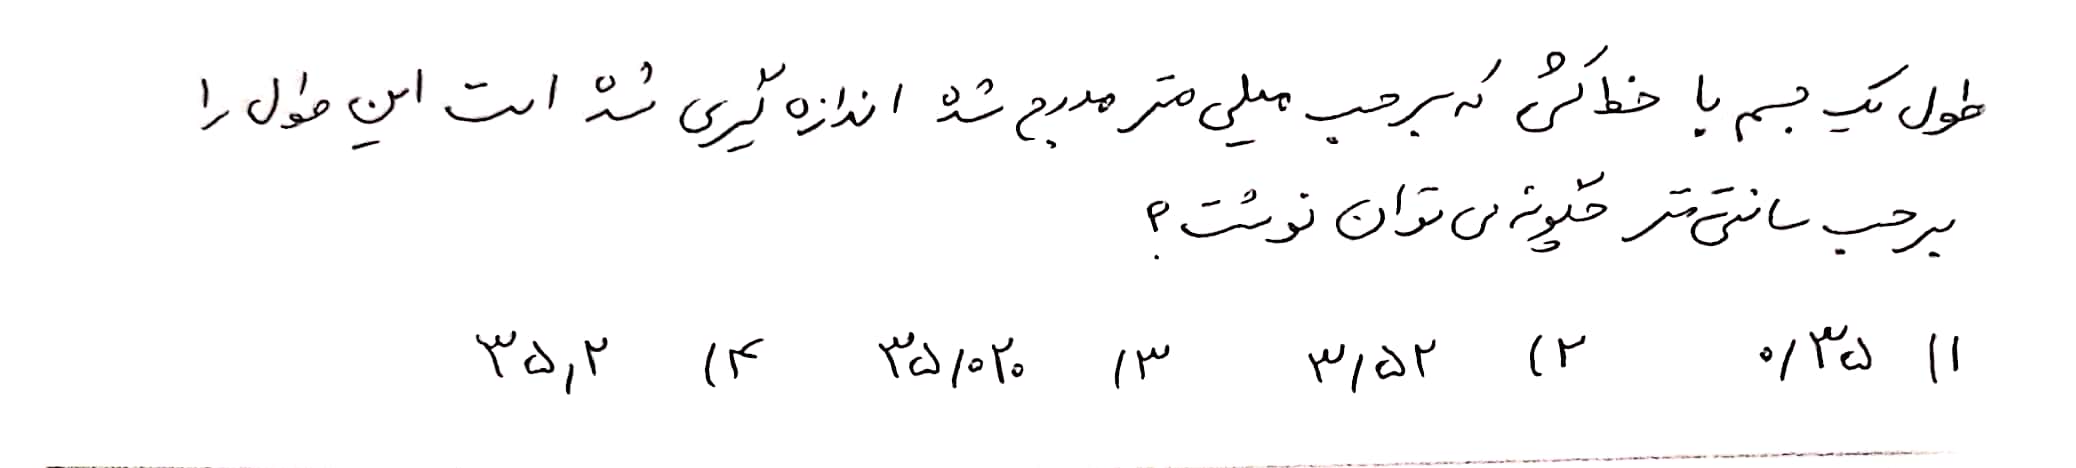 طول یک جسم با خط‌کشی که برحسب میلی‌متر مدرج شده اندازه گیری شده است این طول را
برحسب سانتی‌متر چگونه می توان نوشت؟
۱) ۰/۳۵ ۲) ۳/۵۲ ۳) ۳۵/۰۲۰ ۴) ۳۵٫۲